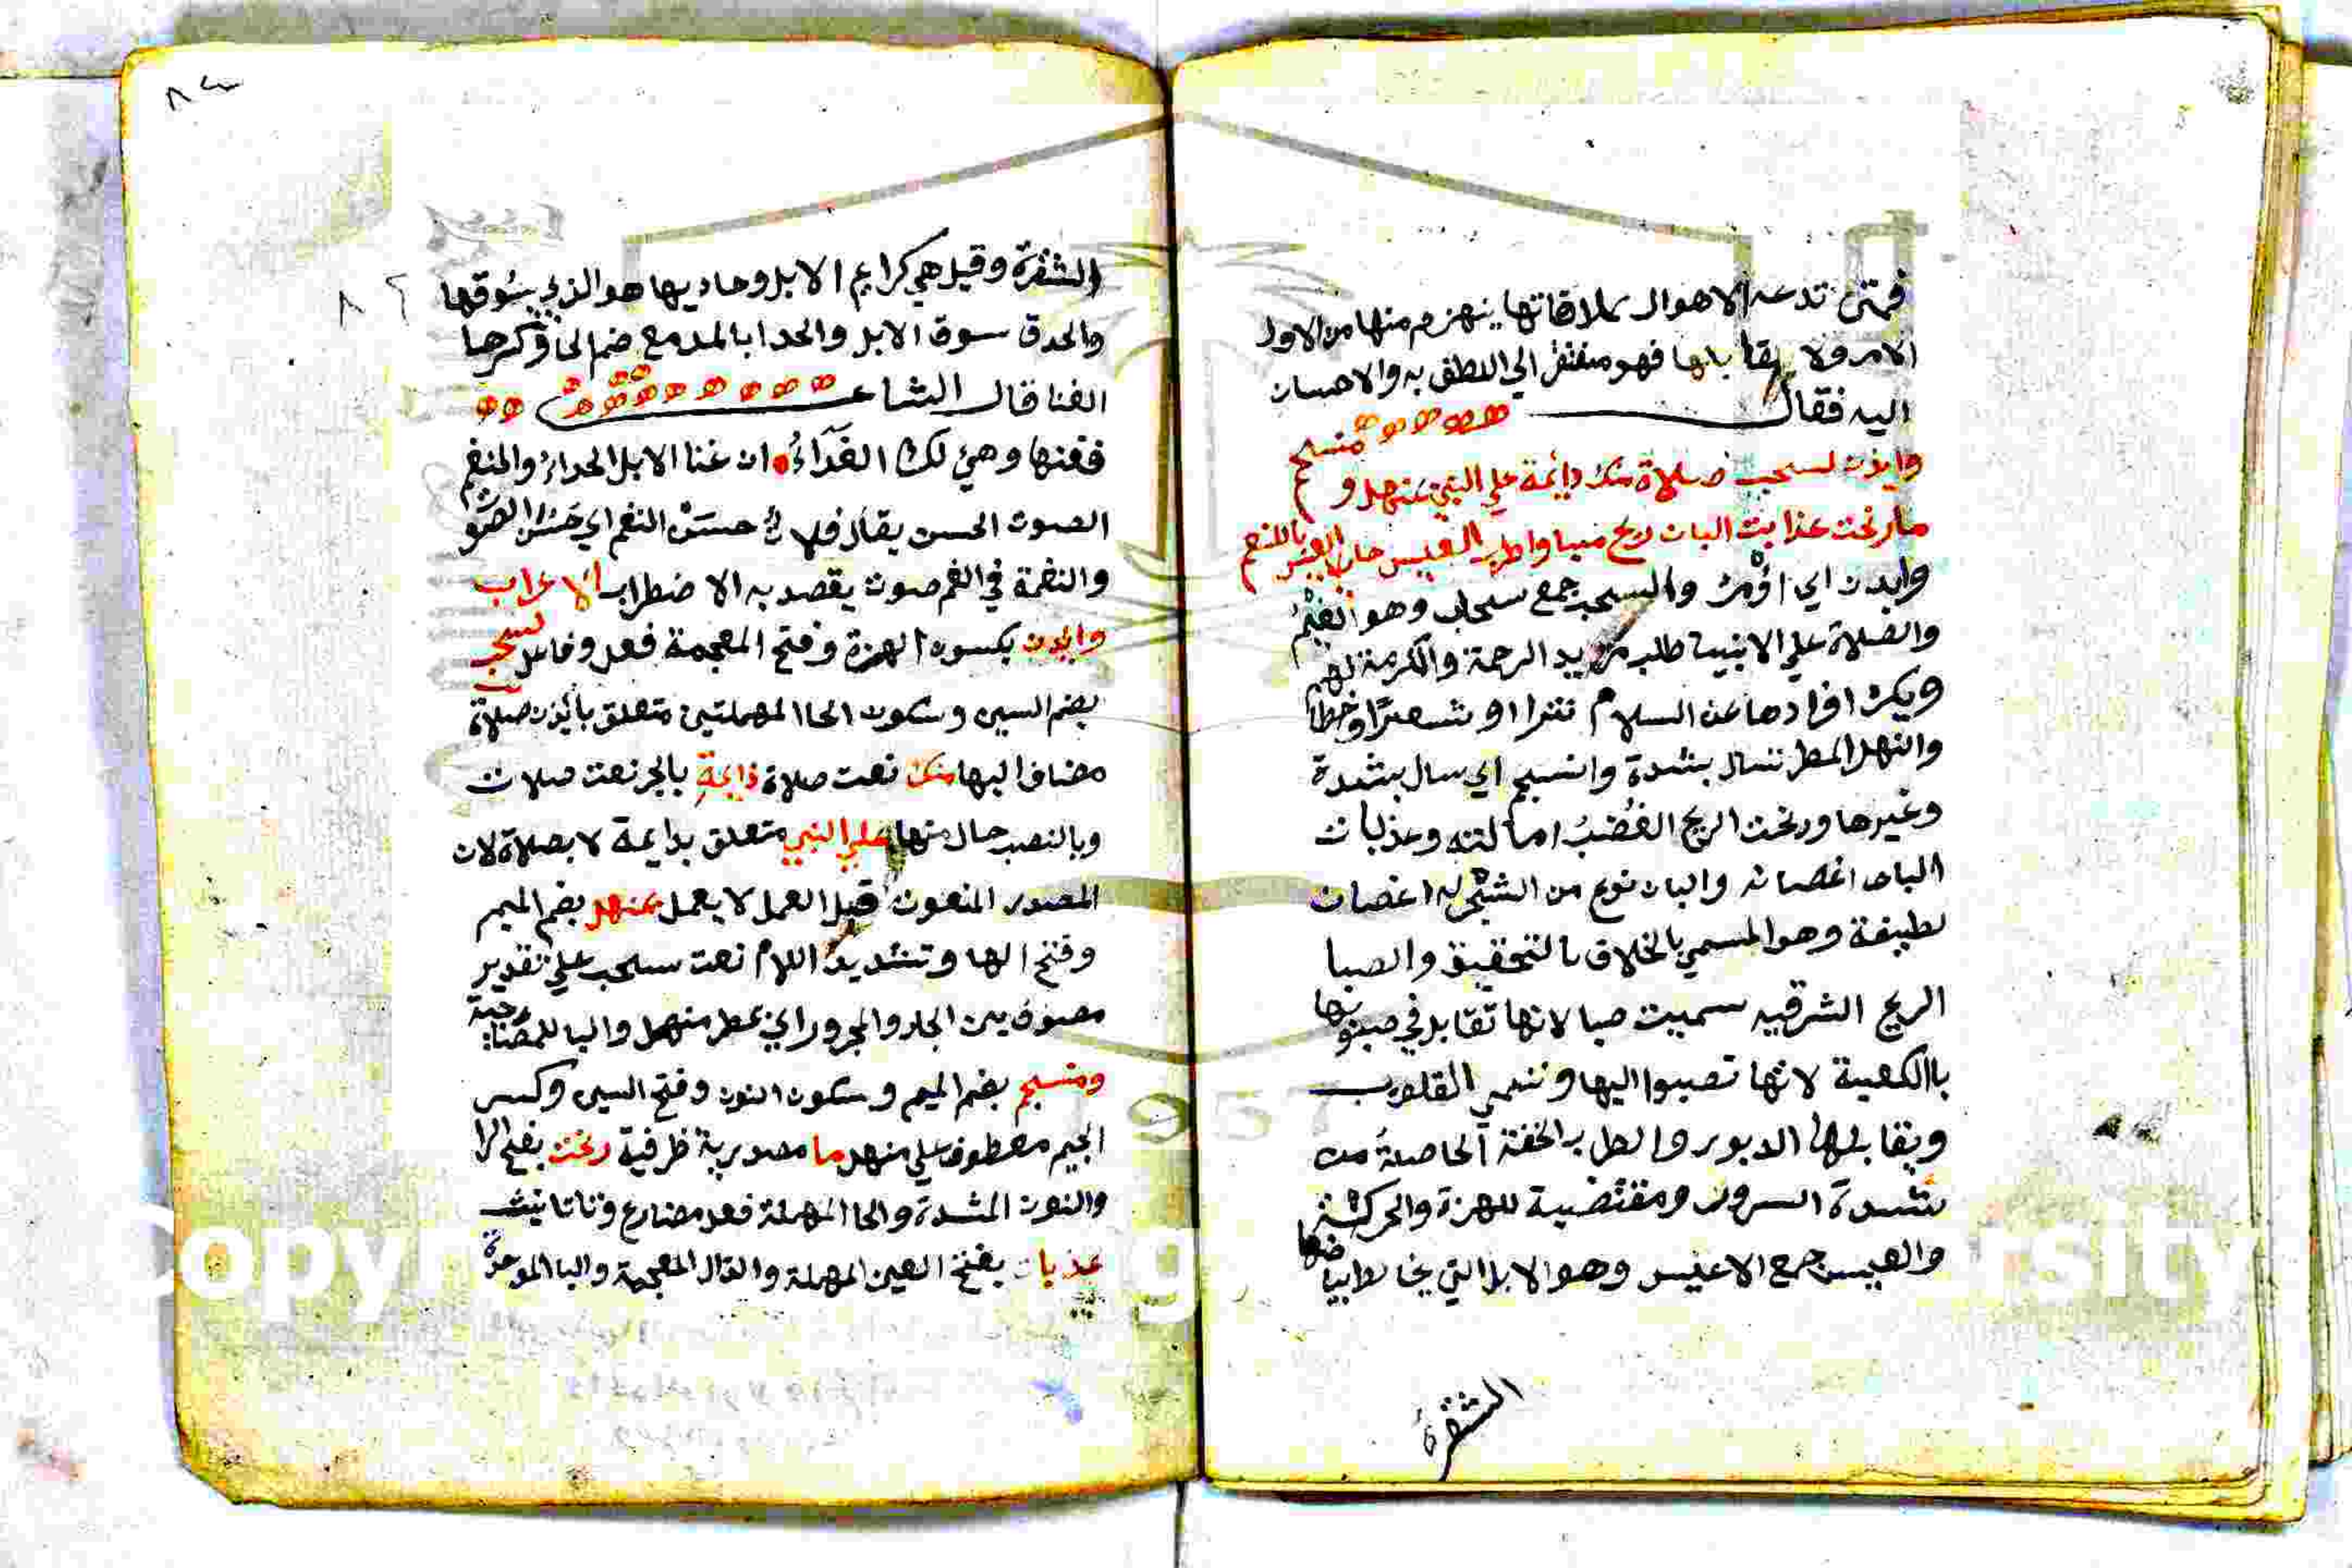 فمتى تدعه الاهوال بملاقاتها ينهزم منها من الاول
الامر ولا يقابلها فهو مفتقر الي اللطف به والاحسان
اليه فقال
وايذن لسحب صلاة منك دايمة علي النبي بمنهل و منسجم
ما رنحت عذبات البان ريح صبا واطرب العيس حادي العيس بالنغم
وايدن اي اؤمر والسحب جمع سحاب وهو الغيم
والصلاة علي الانبيا طلب مزيد الرحمة والكرمة لهم
ويكره افرادها عن السلام نثرا او شعرا وخطا
والنهل المطر نسال بشدة وانسجم اي سال بشدة
وغيرها ورنحت الريح الغضب امالته وعذبات
البان اغصانه والبان نوع من الشجر له اغصان
لطيفة وهو المسمي بالخلاف بالتحقيق والصبا
الريح الشرقيه سميت صبا لانها تقابل في هبوبها
باالكعبة لانها تصبوا اليها وتنمي القلوب
ويقابلها الدبور والطرب الخفة الحاصلة من
شدة السرور ومقتضية للهزة والحركة
والعيس جمع الاعيس وهو الابل التي يخالط بياضها
الشقرة
٨٢
٨٢
الشقرة وقيل هي كرايم الابل وحاديها هو الذي يسوقها
والحدق سوق الابل والحدا بالمد مع ضم الحا وكسرها
الغنا قال الشاعر
فغنها وهي لك الفداء ان غنا الابل الحداء والنغم
الصوت الحسن يقال فلان حسن النغم اي حسن الصوت
والنغمة في الغم صوت يقصد به الاضطراب الاعراب
وايدن بكسوه الهمزة وفتح المعجمة فعل وفاعل لسحب
بضم السين وسكون الحا المهملتين متعلق بائذن صلاة
مضاف اليها منك نعت صلاة دايمة بالجر نعت صلات
وبالنصب حال منها علي النبي متعلق بدايمة لا بصلاة لان
المصدر المنعوت قبل العمل لا يعمل بمنهل بضم الميم
وفتح الها وتشديد اللام نعت سحب علي تقدير
مصوف بين الجار والمجرور اي بمطر منهمل والبا للمصاحبة
ومنسجم بضم الميم وسكون النون وفتح السين وكسر
الجيم معطوف علي منهل ما مصدرية ظرفية رنحت بفتح الرا
والنون المشدة والحا المهملة فعل مضارع وتا تانيث
عذبات بفتح العين المهملة والذال المعجمة والبا الموحدة